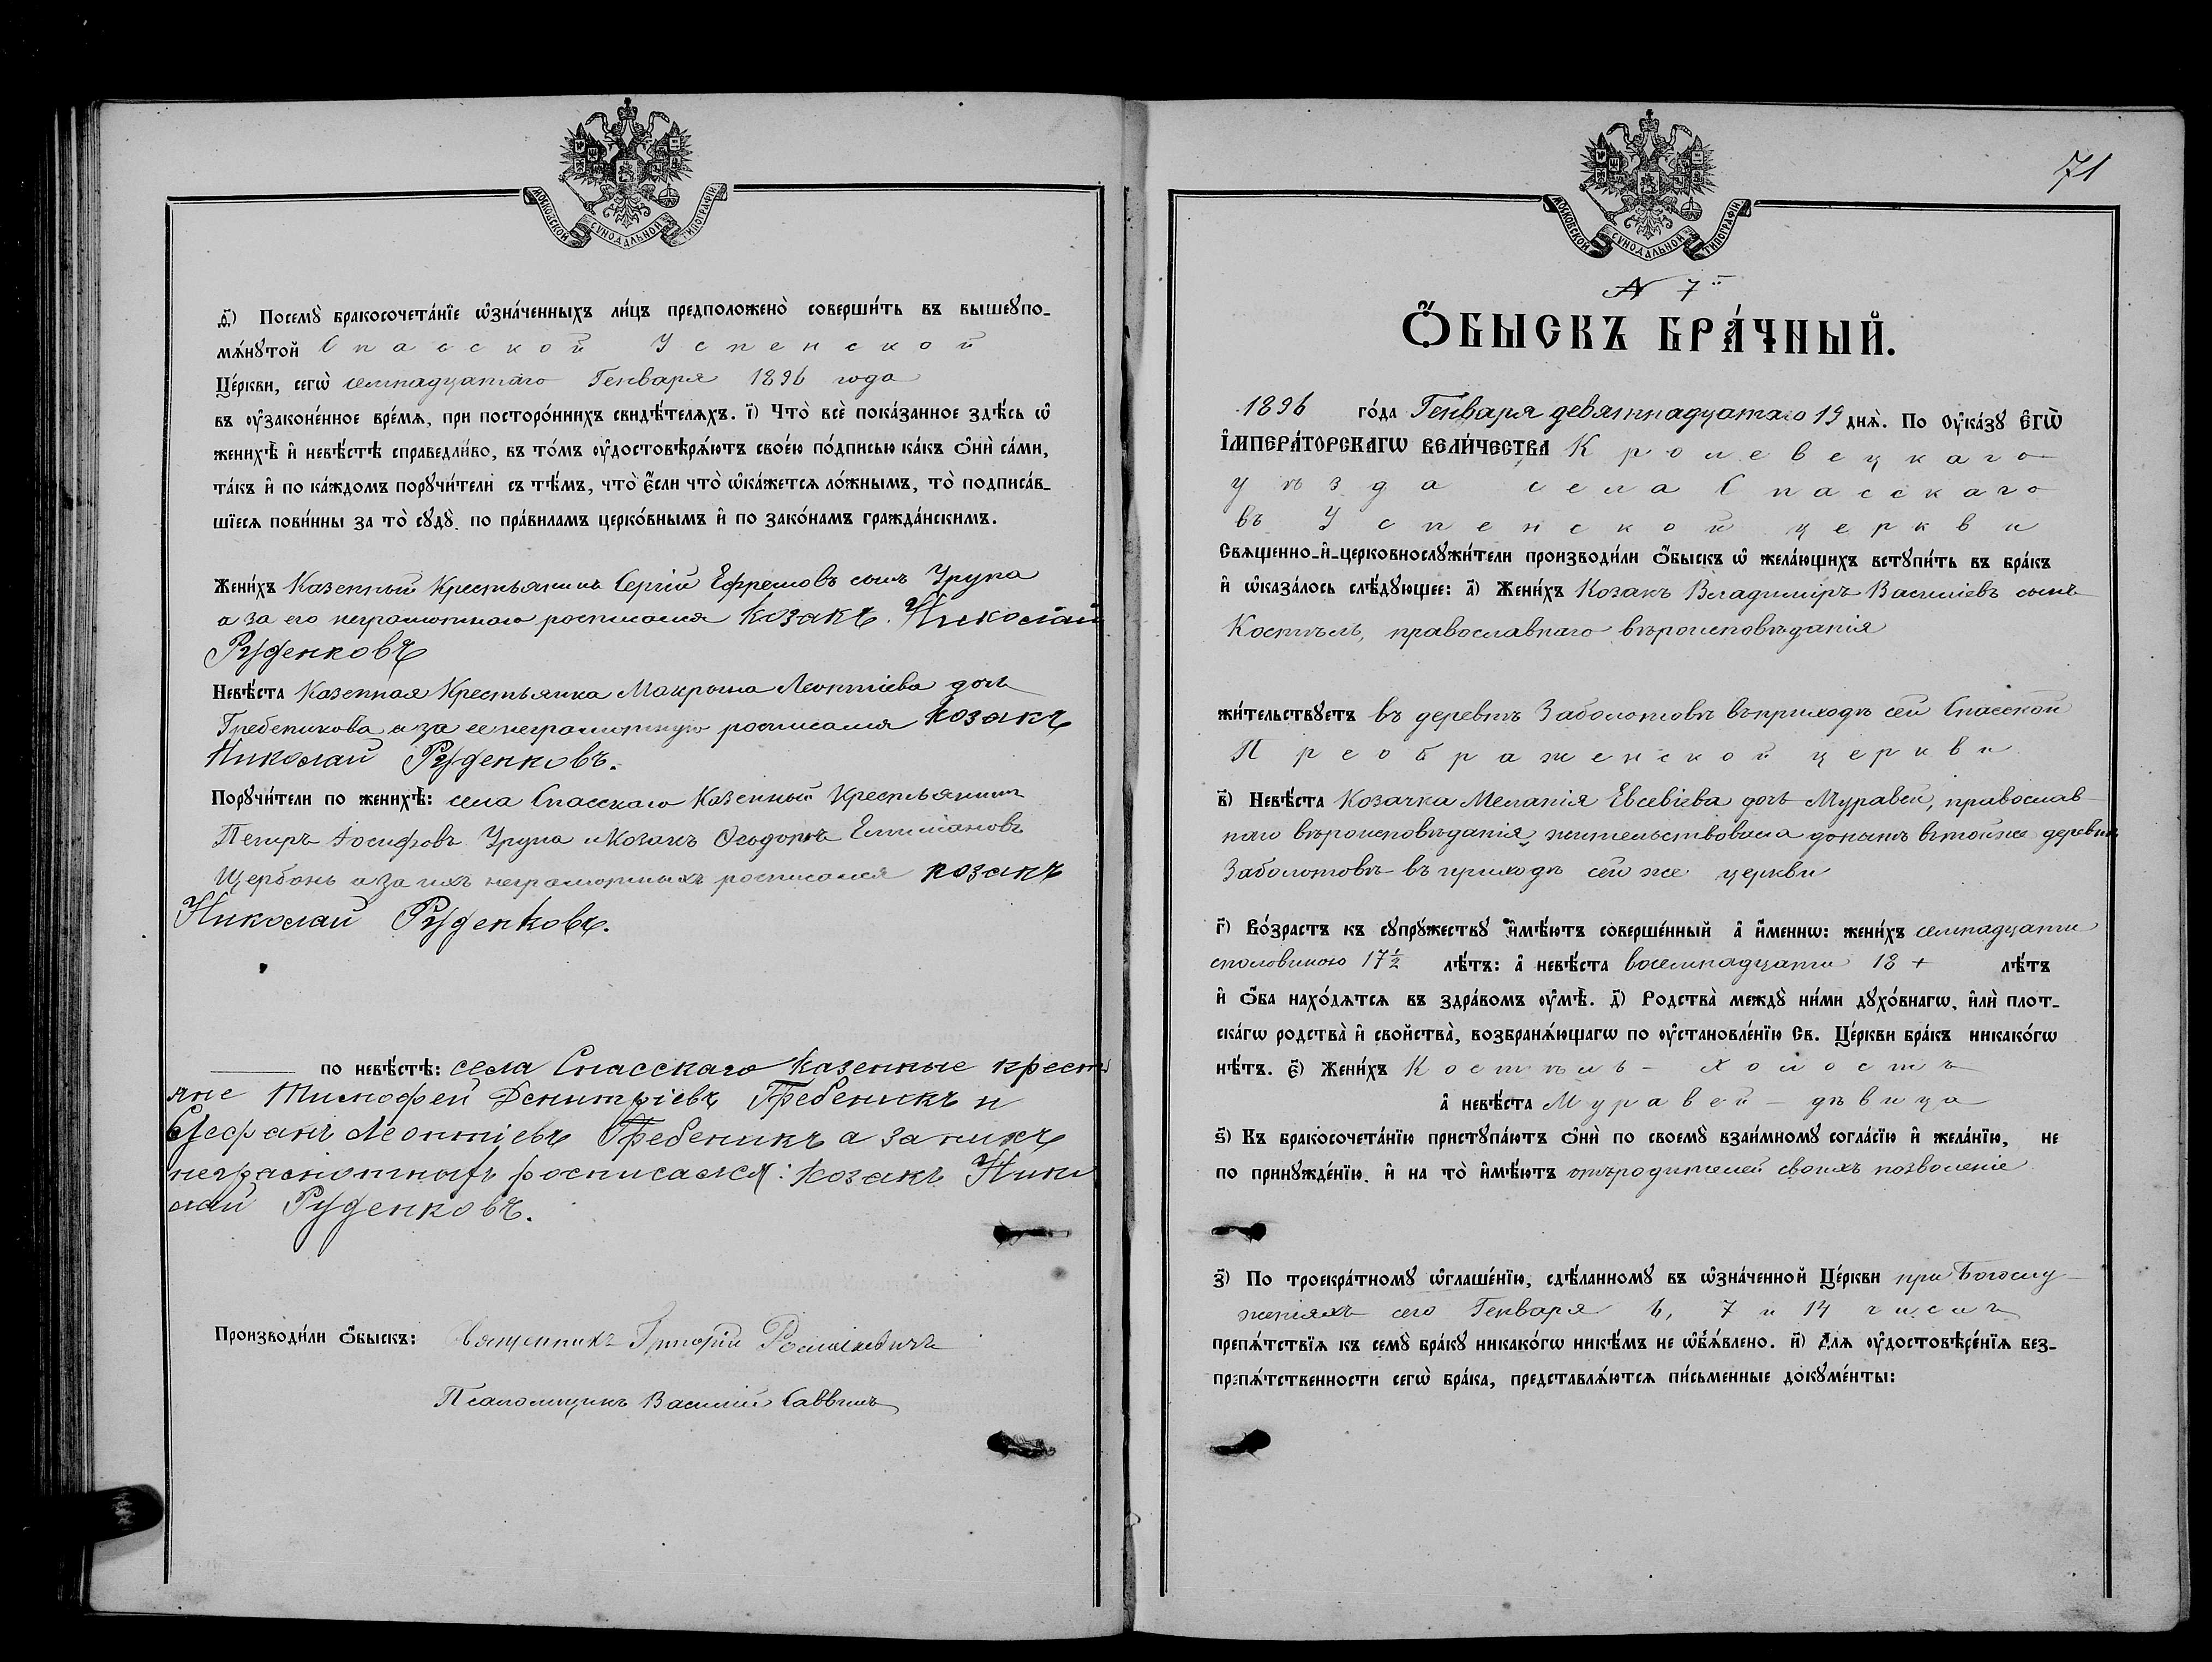 МОСКОВСКОЙ СѴНОДАЛЬНОЙ ТИПОГРАФІИ
д҃і) Посемꙋ̀ бракосочета́нїе ѡ҆зна́ченныхъ ли́цъ предположено̀ соверши́ть въ вышеꙋпо-
мѧ́нꙋтой Спасской Успенской
Це́ркви, сегѡ̀ семнадцатаго Генваря 1896 года
въ ᲂу҆законе́нное вре́мѧ, при посторо́ннихъ свидѣ́телѧхъ. і҃) Что̀ всѐ пока́занное здѣ́сь ѡ҆
женихѣ̀ и҆ невѣ́стѣ справедли́во, въ то́мъ ᲂу҆достовѣрѧ́ютъ свое́ю по́дписью ка́къ ѻ҆нѝ са́ми,
та́къ и҆ по ка́ждомъ порꙋчи́тели съ тѣ́мъ, что̀ є҆́сли что̀ ѡ҆ка́жетсѧ ло́жнымъ, то̀ подписа́в-
шїесѧ пови́нны за то̀ сꙋдꙋ̀ по пра́виламъ церко́внымъ и҆ по зако́намъ гражда́нскимъ.
Жени́хъ Казенный Крестьянинъ Сергій Ефремовъ сынъ Урупа
а за его неграмотнаго росписался козакъ. Николай
Руденковъ
Невѣ́ста Казенная Крестьянка Макрына Леонтіева дочь
Гребеникова а за ее неграмотную росписался козакъ
Николай Руденковъ.
Порꙋчи́тели по женихѣ̀: села Спасскаго Казенный Крестьянинъ
Петръ Іосифовъ Урупа и Козакъ Ѳеодоръ Емиліановъ
Щербонь а за ихъ неграмотныхъ росписался козакъ
Николай Руденковъ.
по невѣ́стѣ: села Спасскаго казенные кресть
яне Тимофей Демитріевъ Гребеникъ и
Стефанъ Леонтіевъ Гребеникъ а за нихъ
неграмотныхъ росписался: козакъ Нико
лай Руденковъ.
Производи́ли ѻ҆́быскъ: Священникъ Григорій
Псаломщикъ Василій Саввичъ
71
МОСКОВСКОЙ СѴНОДАЛЬНОЙ ТИПОГРАФІИ
N 7й
Ѻ҆́БЫСКЪ БРА́ЧНЫЙ.
1896 го́да Генваря девятнадцатаго 19 днѧ̀. По Оу҆ка́зꙋ Є҆ГѠ̀
І҆МПЕРА́ТОРСКАГѠ ВЕЛИ́ЧЕСТВА Кролевецкаго
уѣзда села Спасскаго
въ Успенской церкви
Свѧщенно-и҆-церковнослꙋжи́тели производи́ли ѻ҆́быскъ ѡ҆ жела́ющихъ встꙋпи́ть въ бра́къ
и҆ ѡ҆каза́лось слѣ́дꙋющее: а҃) Жени́хъ Козакъ Владимиръ Василіевъ сынъ
Костыль, православнаго вѣроисповѣданія
жи́тельствꙋетъ въ деревнѣ Заболотовѣ въ приходѣ сей Спасской
Преображенской церкви
в҃) Невѣ́ста Козачка Меланія Евсевіева дочь Муравей, православ-
наго вѣроисповѣданія, жительствовала донынѣ въ той же деревнѣ
Заболотовѣ въ приходѣ сей же церкви
г҃) Во́зрастъ къ сꙋпрꙋ́жествꙋ и҆мѣ́ютъ соверше́нный а҆ и҆́меннѡ: жени́хъ семнадцати
споловиною 17½ лѣ́тъ: а҆ невѣ́ста восемнадцати 18 + лѣ́тъ
и҆ ѻ҆́ба нахо́дѧтсѧ въ здра́вомъ ᲂу҆мѣ̀. д҃) Родства̀ междꙋ̀ ни́ми дꙋхо́внагѡ, и҆лѝ плот-
ска́гѡ родства̀ и҆ свойства̀, возбранѧ́ющагѡ по ᲂу҆становле́нїю Св. Це́ркви бра́къ никако́гѡ
нѣ́тъ. є҃) Жени́хъ Костыль - холостъ
а҆ невѣ́ста Муравей - дѣвица
ѕ҃) Къ бракосочета́нїю пристꙋпа́ютъ ѻ҆нѝ по своемꙋ̀ взаи́мномꙋ согла́сїю и҆ жела́нїю, не
по принꙋжде́нїю и҆ на то̀ и҆мѣ́ютъ отъ родителей своихъ позволеніе
з҃) По троекра́тномꙋ ѡ҆глаше́нїю, сдѣ́ланномꙋ въ ѡ҆зна́ченной Це́ркви при Богослу-
женіяхъ сего Генваря 6, 7 и 14 числъ
препѧ́тствїѧ къ семꙋ̀ бра́кꙋ никако́гѡ никѣ́мъ не ѡ҆б̾ѧ́влено. и҃) Длѧ ᲂу҆достовѣре́нїѧ без-
препѧ́тственности сегѡ̀ бра́ка, представлѧ́ютсѧ пи́сьменные докꙋме́нты: